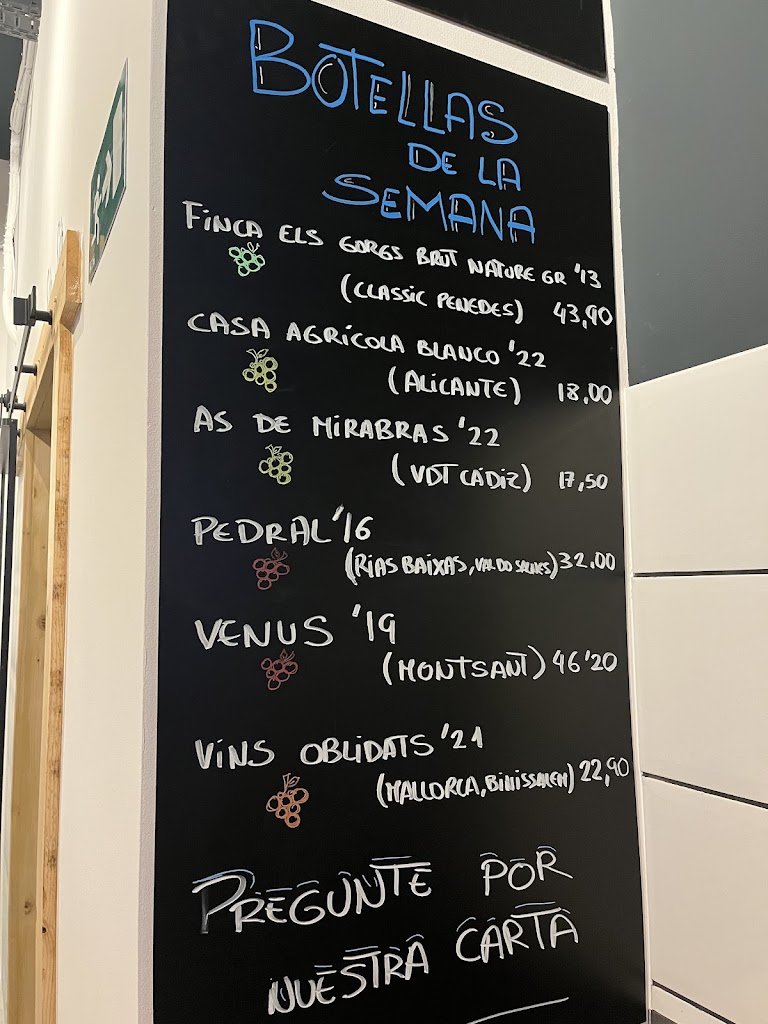 BOTELLAS
DE LA
SEMANA
FINCA ELS GORGS BRUT NATURE GR '13
(CLASSIC PENEDES) 43,90
CASA AGRÍCOLA BLANCO '22
(ALICANTE) 18,00
AS DE MIRABRAS '22
(VDT CÁDIZ) 17,50
PEDRAL '16
(RIAS BAIXAS, VAL DO SALNES) 32.00
VENUS '19
(MONTSANT) 46'20
VINS OBLIDATS '21
(MALLORCA, BINISSALEM) 22,90
PREGUNTE POR
NUESTRA CARTA